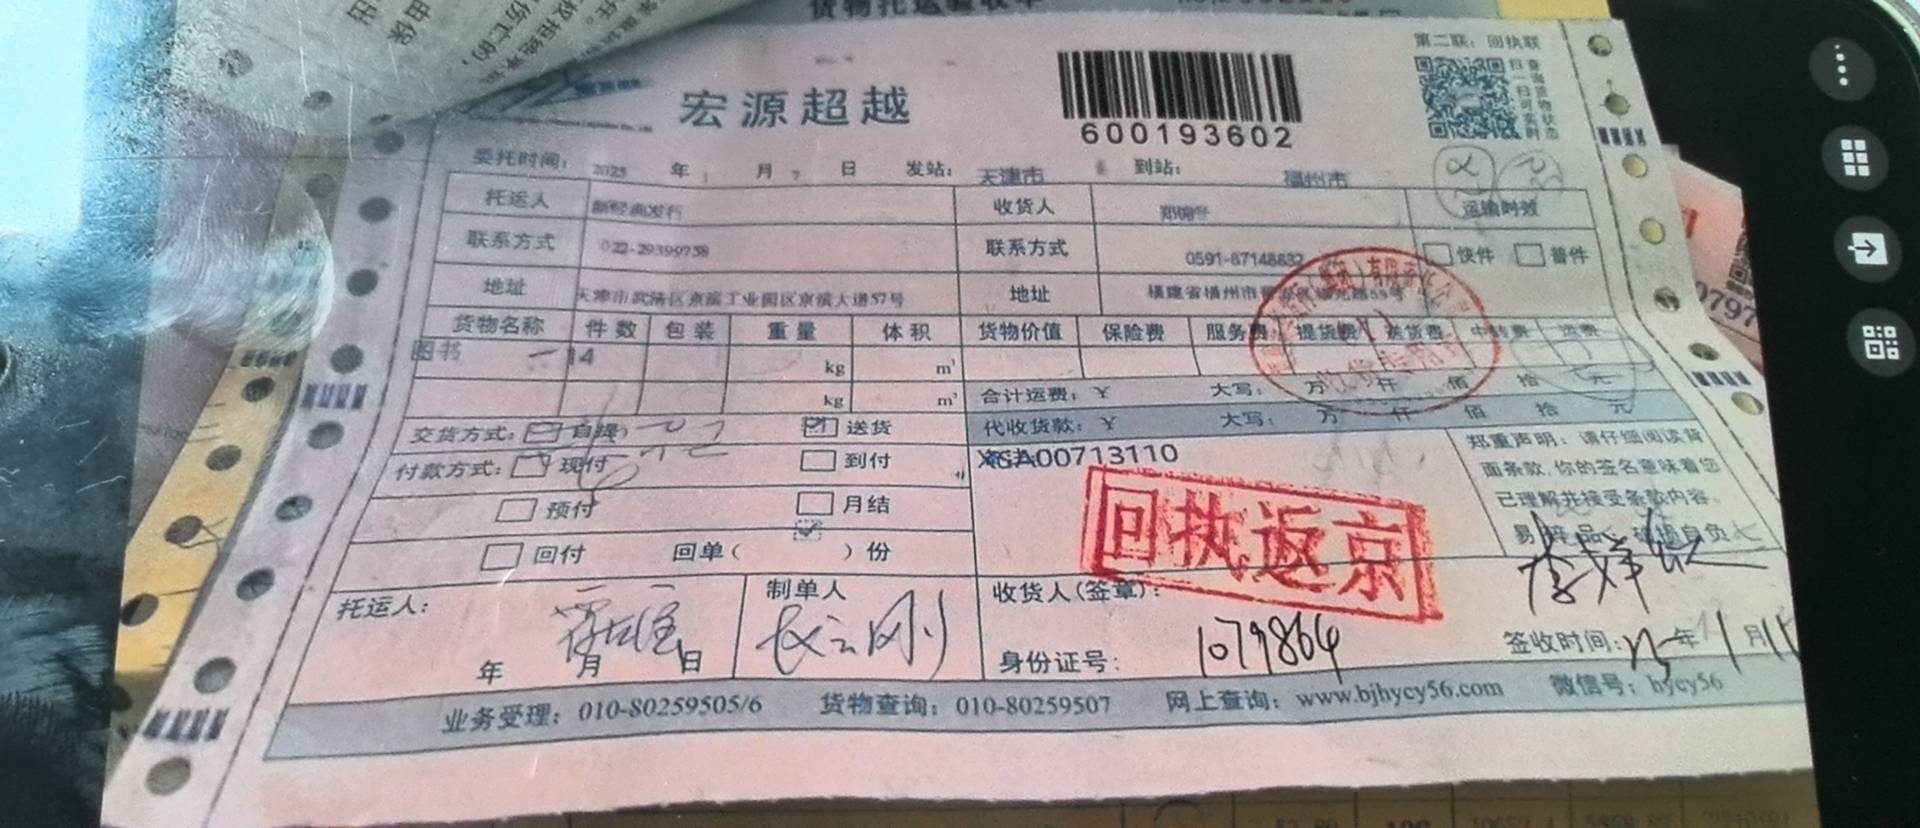 第二联：回执联
宏源超越
600193602
扫一扫可实时
查询货物状态
委托时间： 2025 年 月 日 发站： 天津市 到站： 福州市
托运人 新经典发行 收货人 运输时效
联系方式 022-29399758 联系方式 0591-87148832 快件 普件
地址 天津市武清区京滨工业园区京滨大道57号 地址 福建省福州市
货物名称 件数 包装 重量 体积 货物价值 保险费 服务费 提货费 送货费 中转费 运费
图书 14 kg m³
kg m³ 合计运费：￥ 大写： 万 仟 佰 拾 元
交货方式： 自提 送货 代收货款：￥ 大写： 万 仟 佰 拾 元
付款方式： 现付 到付 XSA00713110
预付 月结
回付 回单（ ）份
郑重声明：请仔细阅读背
面条款,你的签名意味着您
已理解并接受条款内容。
易碎品、破损自负
回执返京
托运人： 制单人 收货人(签章)：
年 月 日 身份证号： 1079864 签收时间： 年 月
业务受理：010-80259505/6 货物查询：010-80259507 网上查询：www.bjhycy56.com 微信号：hycy56